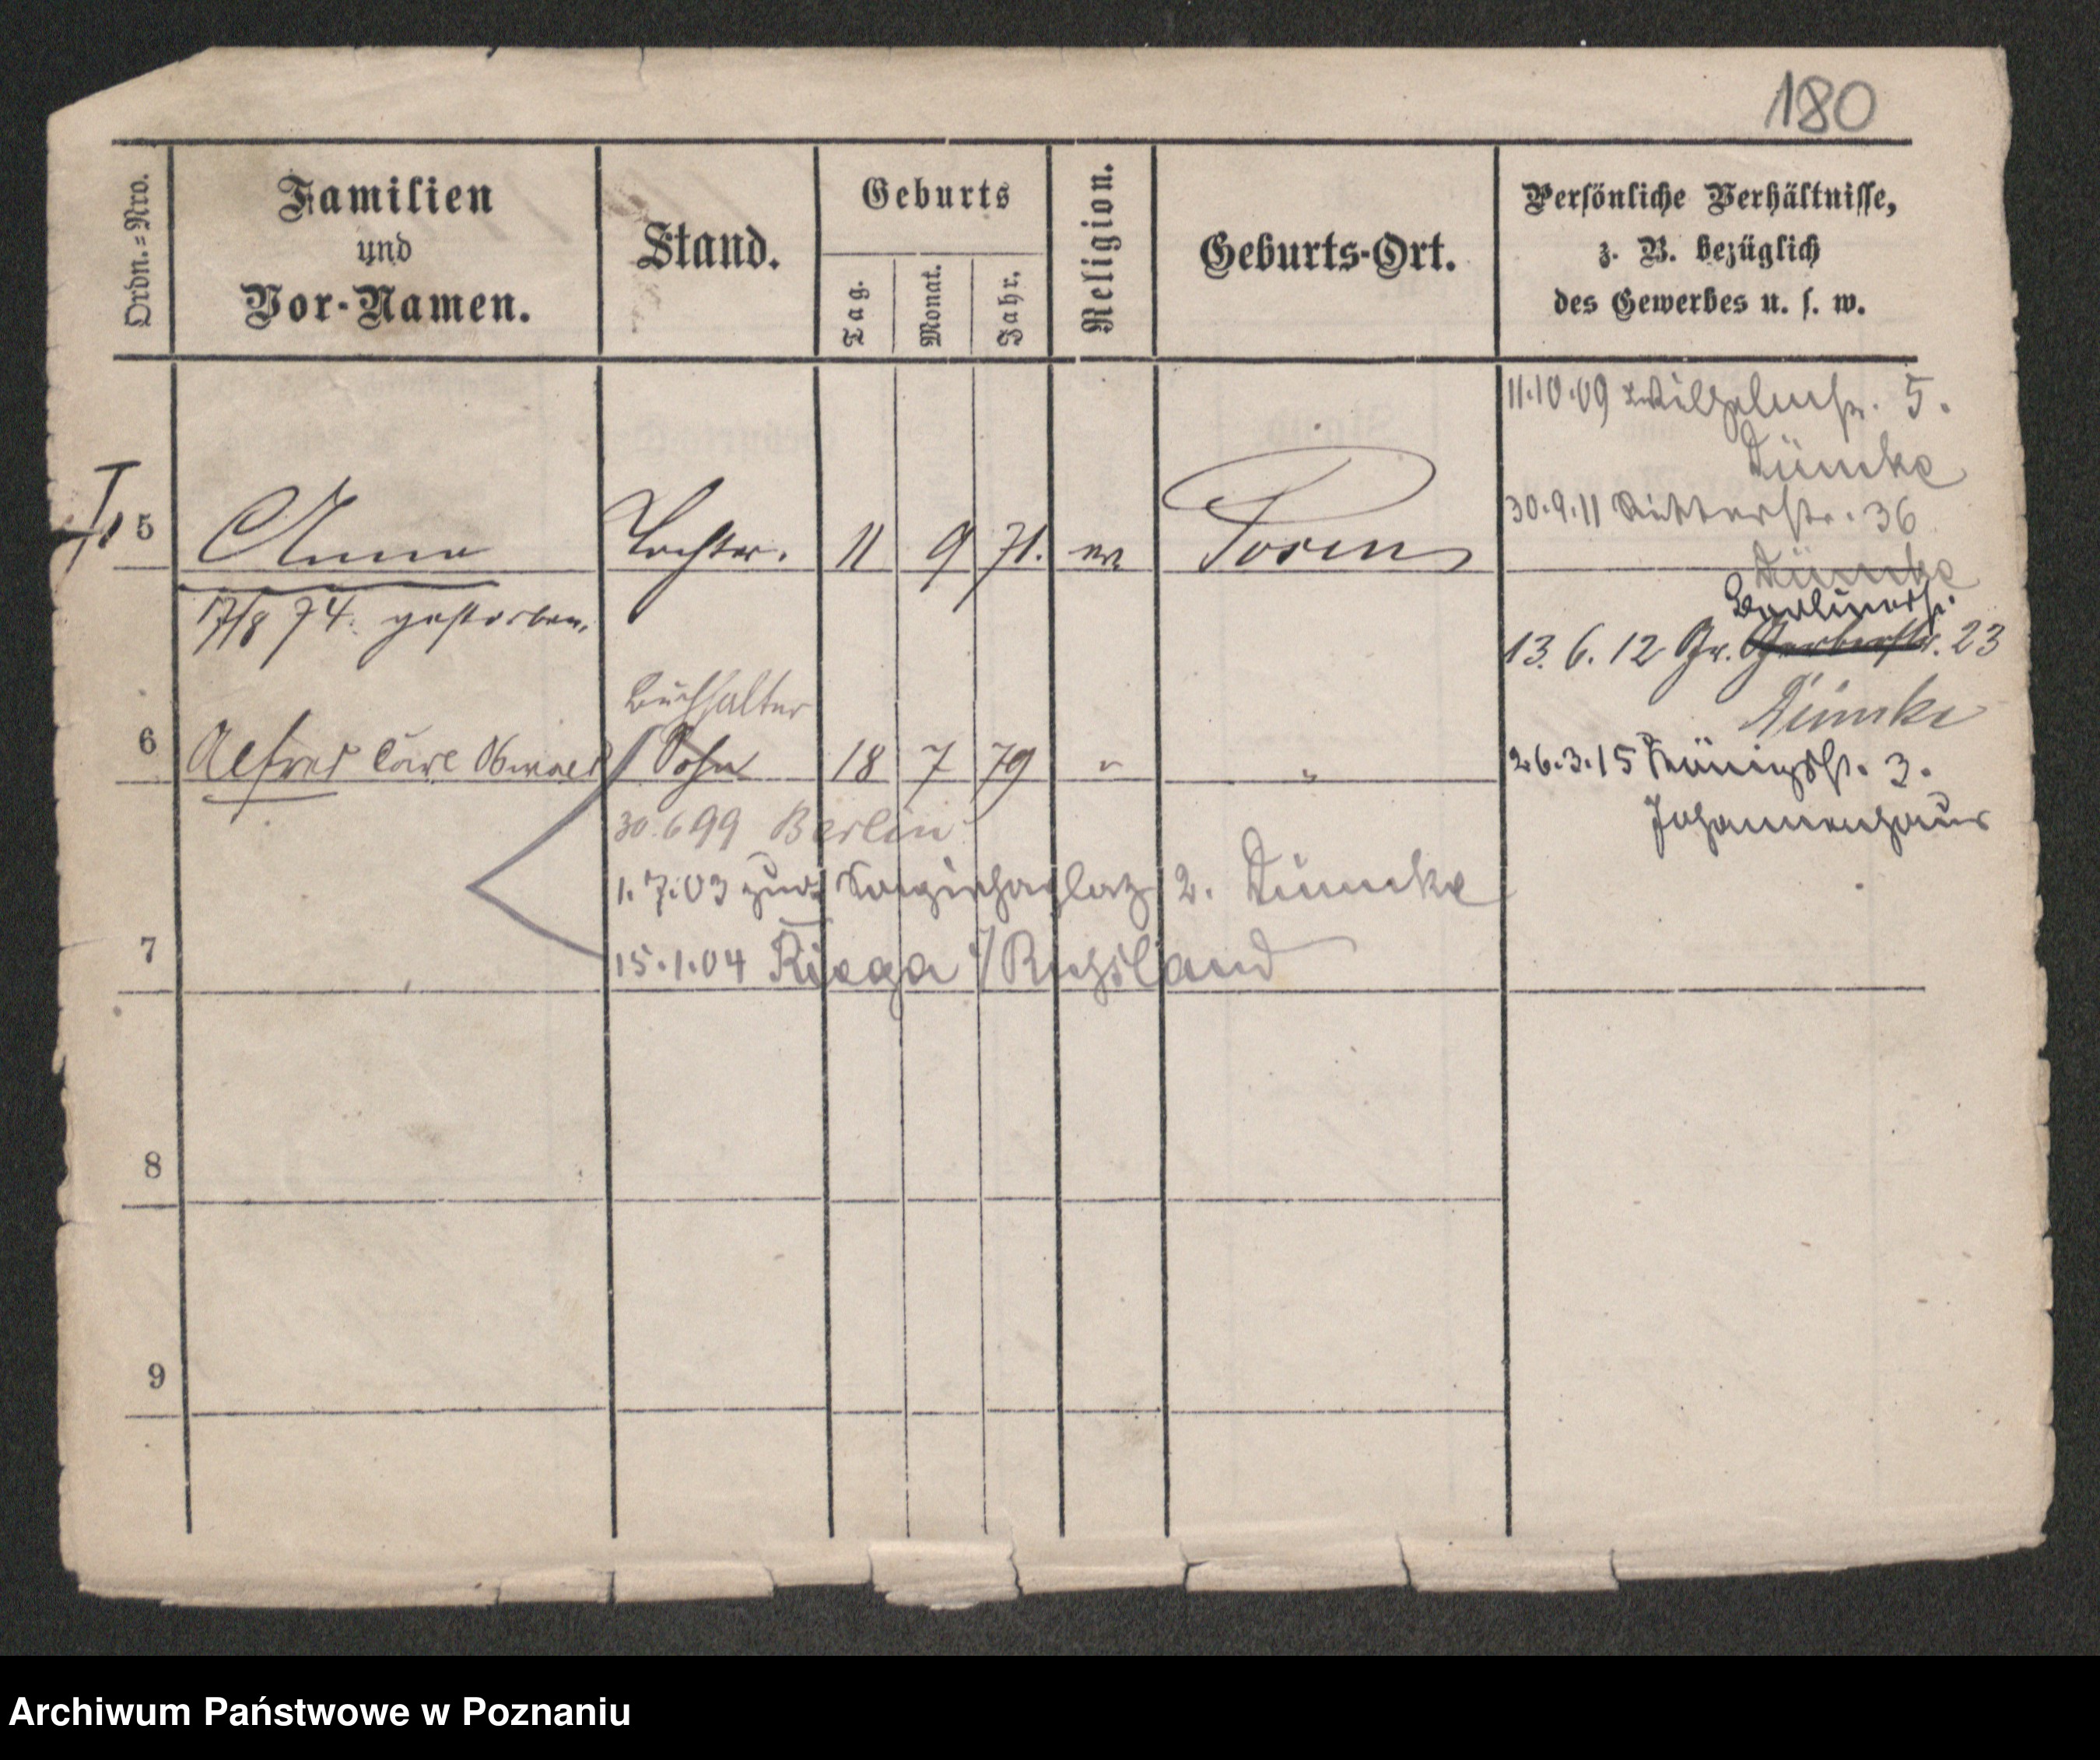 180
Ordn.=Nro.
Familien
und
Vor-Namen.
Stand.
Geburts
Tag.
Monat.
Jahr.
Religion.
Geburts-Ort.
Persönliche Verhältnisse,
z. B. bezüglich
des Gewerbes u. s. w.
11.10.09 Wilhelmstr. 5.
Dümke
30.9.11 Ritterstr. 36
Dümke
5 Anna Tochter. 11 9 71. ev Posen
17/8 74. gestorben.
Berlinerstr.
13. 6. 12 Gr. Gerberstr. 23
Dümke
Buchhalter
6 Alfred Carl Oswald Sohn 18 7 79 " "
26.3.15 Königstr. 3.
Johannenhaus
30.6 99 Berlin
1.7.03 zur. Sapiehaplatz 2. Dümke
7
15.1.04 Riega i/Rußland
8
9
Archiwum Państwowe w Poznaniu